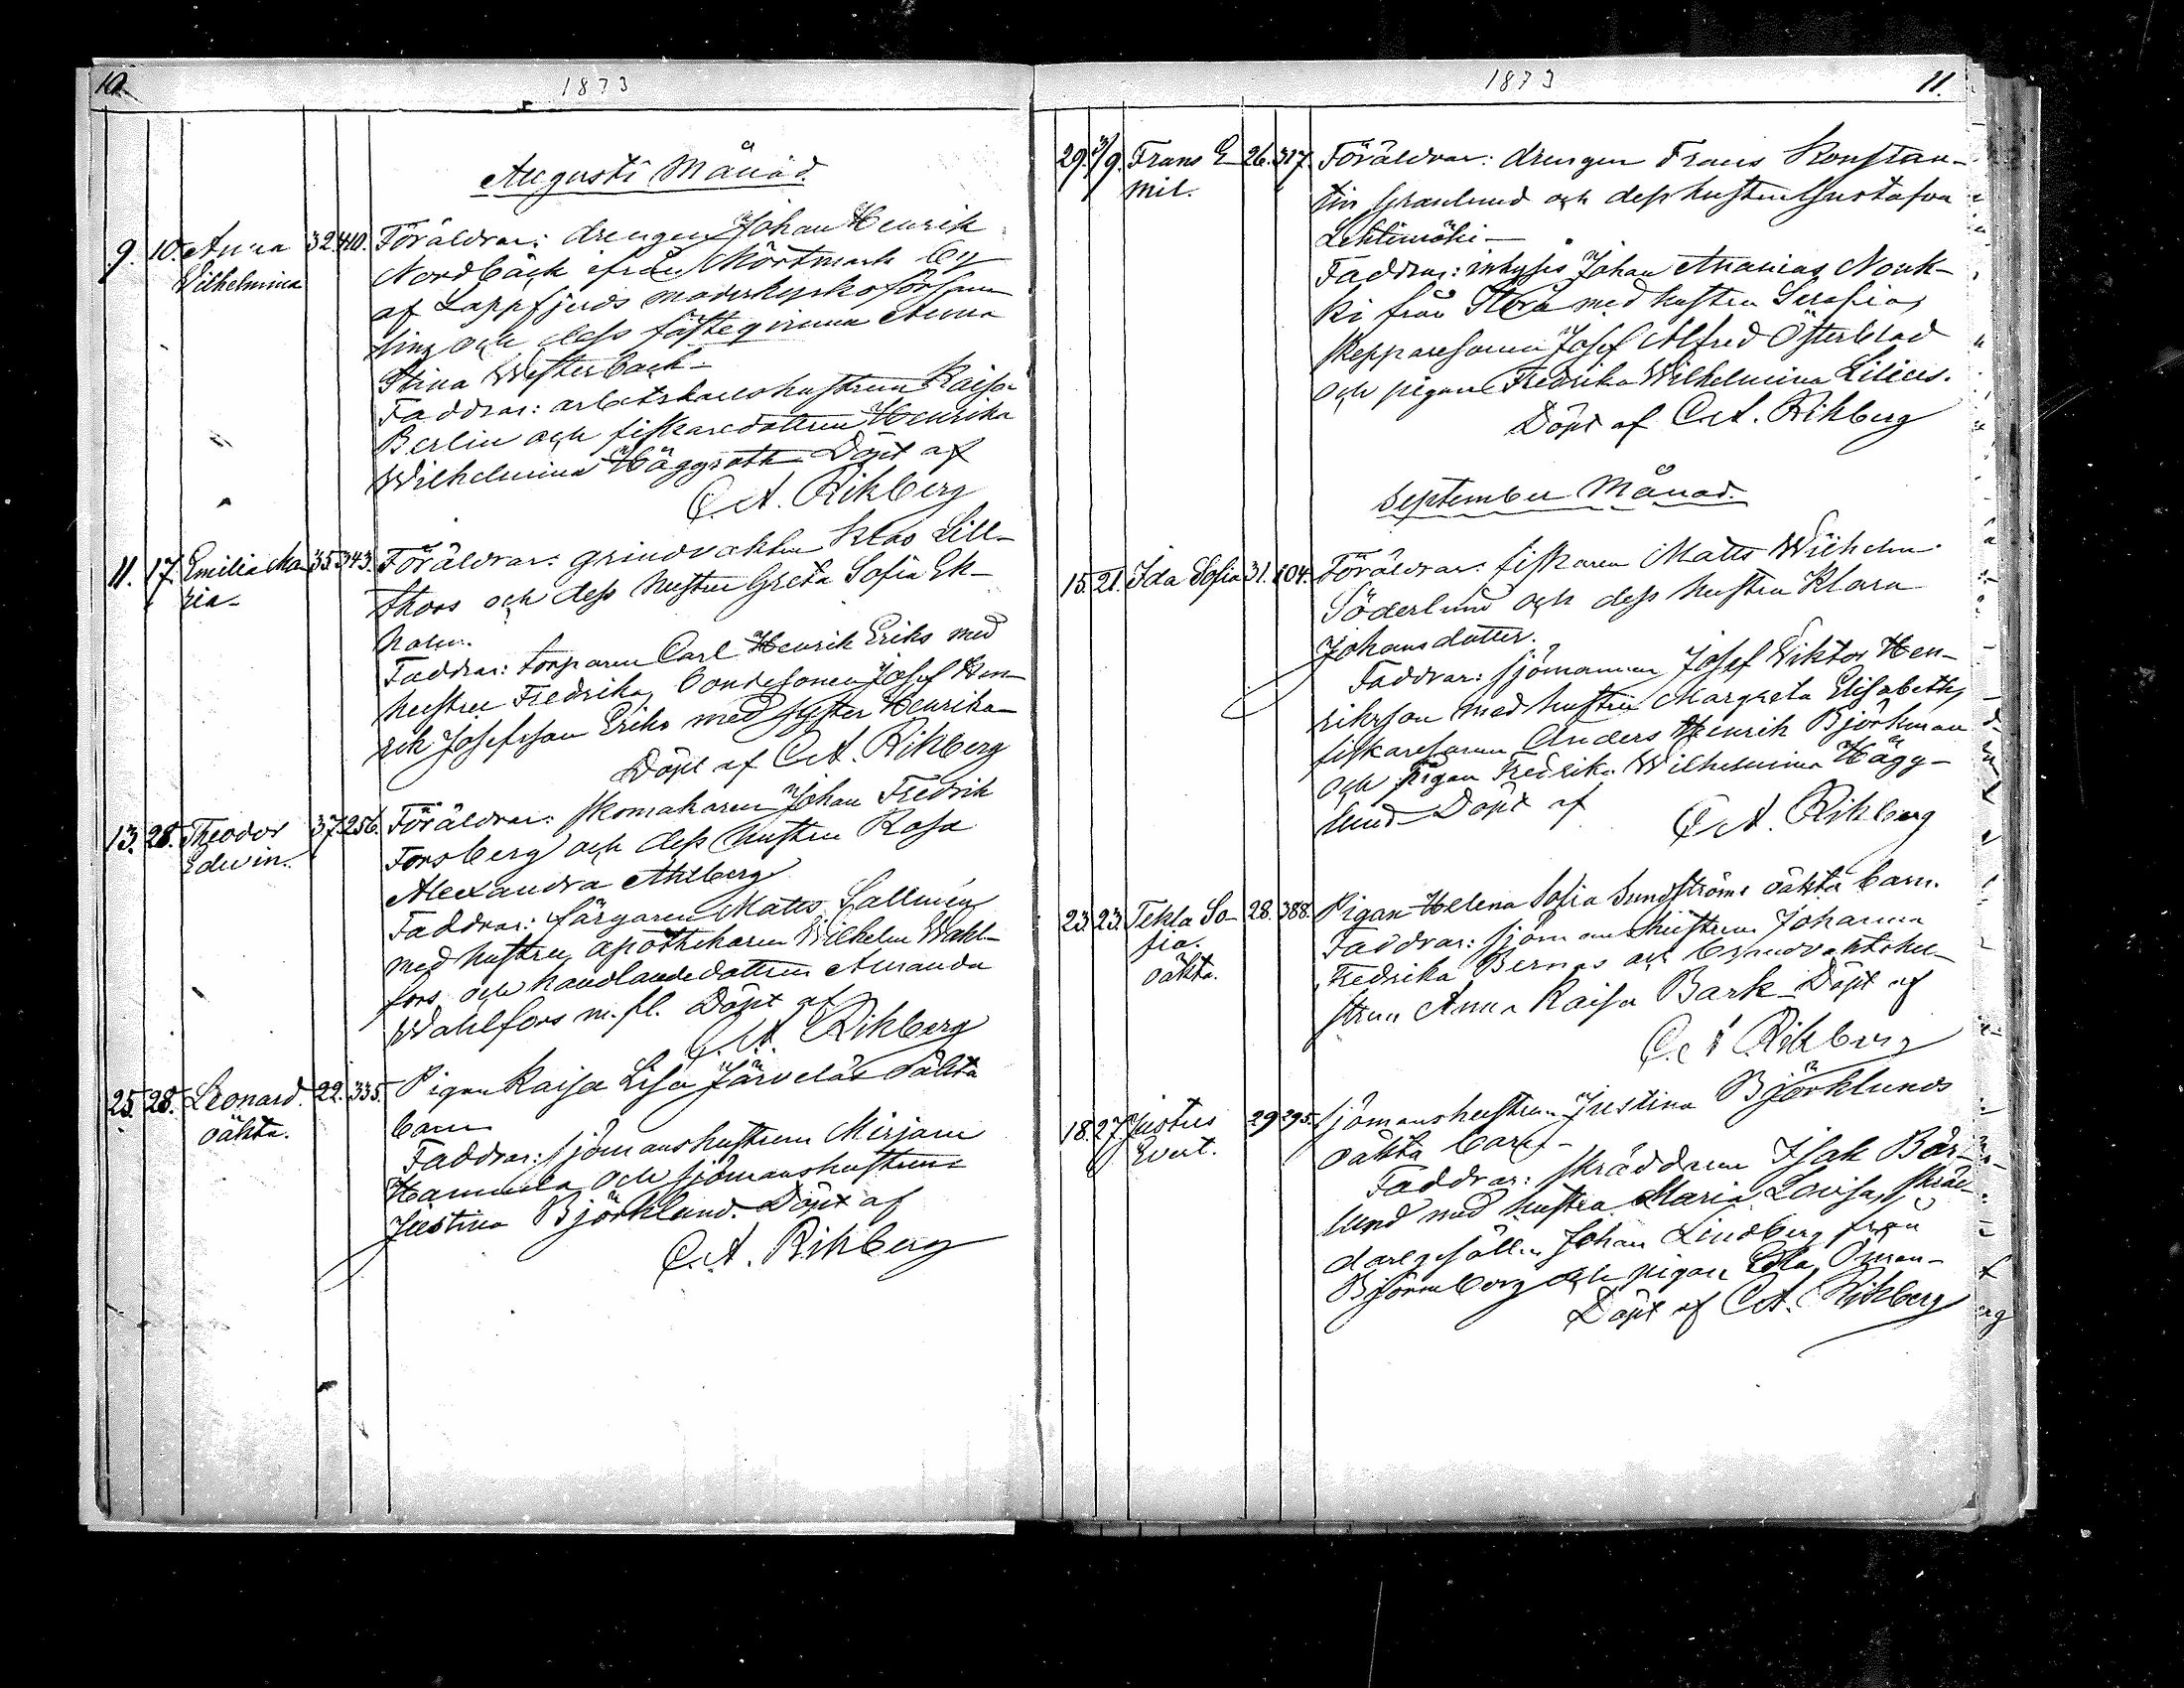 10.
1873
Augusti Månad.
9. 10. Anna 32. 410. Föräldrar: drengen Johan Henrik
Wilhelmina Nordbäck ifrån Mörtmark by
af Lappfjerds moderkyrkoförsam
ling och dess fästeqvinna Anna
Stina Westerback-
Faddrar: arbetskarlshustrun Kaisa
Berlin och fiskaredottren Henrika
Wilhelmina Häggroth Döpt af
C. A. Rikberg
11. 17. Emilia Ma- 35. 343. Föräldrar: grindvakten Klas Lill-
ria- thors och dess hustru Greta Sofia Ek-
holm.
Faddrar: torparen Carl Henrik Eriks med
hustru Fredrika, bondesonen Josef Hen-
rik Josefsson Eriks med syster Henrika
Döpt af C. A. Rikberg
13. 28. Theodor 37. 256. Föräldrar: skomakaren Johan Fredrik
Edwin. Forsberg och dess hustru Rosa
Alexandra Ahlberg
Faddrar: färgaren Matts Sallmén
med hustru, apothekaren Wilhelm Wahl-
fors och handlandedottren Amanda
Wahlfors m. fl. Döpt af
C. A. Rikberg
25. 28. Leonard 22. 335. Pigan Kaisa Lisa Järveläs oäkta
oäkta. barn
Faddrar: sjömanshustrun Mirjam
Hammela och sjömanshustrun
Justina Björklund. Döpt af
C. A. Rikberg
1873
11.
29. 3/9. Frans E 26. 317. Föräldrar: drengen Frans Konstan-
mil. tin Granlund och dess hustru Gustafva
Lehtimäki-
Faddrar: inhyses Johan Ananias Nouk-
ki från Storå med hustru Serafia,
skepparesonen Josef Alfred Österblad
och pigan Fredrika Wilhelmina Lilius.
Döpt af C. A. Rikberg
September Månad.
15. 21. Ida Sofia 31. 104. Föräldrar: fiskaren Matts Wilhelm
Söderlund och dess hustru Klara
Johansdotter.
Faddrar: sjömannen Josef Viktor Hen-
riksson med hustru Margreta Elisabeth,
fiskaresonen Anders Henrik Björkman
och pigan Fredrika Wilhelmina Hägg-
lund Döpt af
C. A. Rikberg
23. 23. Tekla So- 28. 388. Pigan Helena Sofia Sundströms oäkta barn.
fia. Faddrar: sjömanshustrun Johanna
oäkta. Fredrika Bernas och brandvaktshu-
strun Anna Kaisa Bark Döpt af
C. A. Rikberg
18. 27. Justus 29. 295. sjömanshustrun Justina Björklunds
Evert. oäkta barn-
Faddrar: skräddaren Isak Bär-
lund med hustru Maria Lovisa, skräd-
daregesällen Johan Lindberg från
Björneborg och pigan Eva Öman-
Döpt af C. A. Rikberg